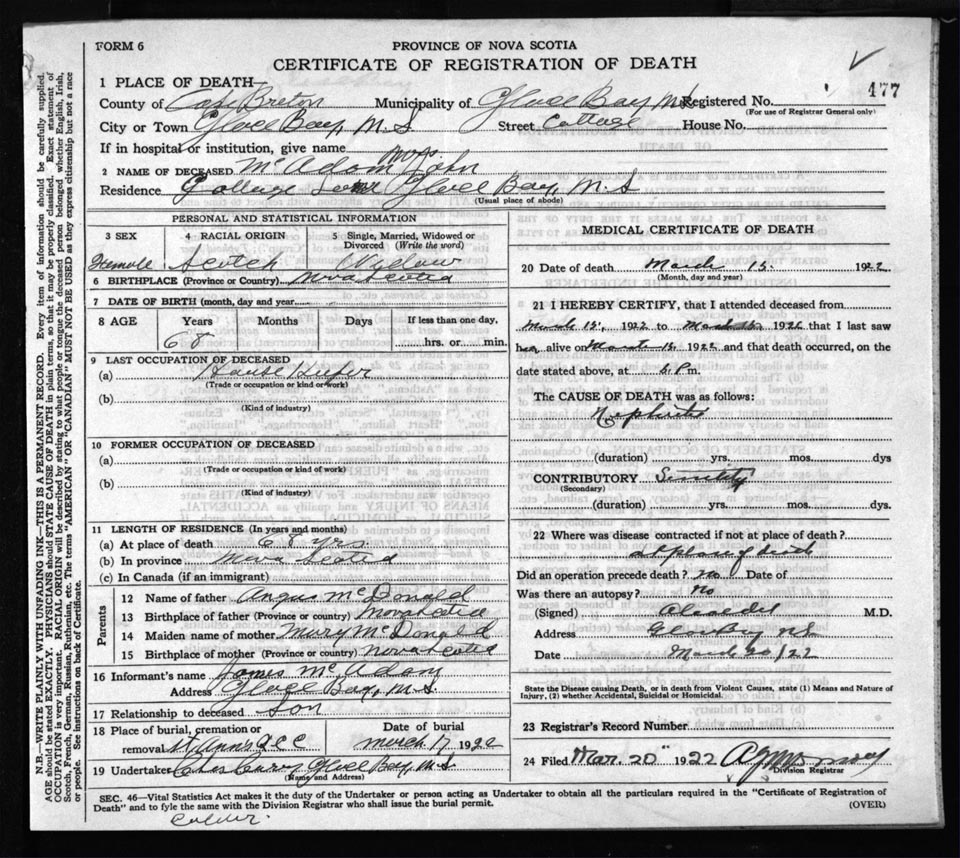 FORM 6
PROVINCE OF NOVA SCOTIA
CERTIFICATE OF REGISTRATION OF DEATH
477
1 PLACE OF DEATH
County of Cape Breton Municipality of Glace Bay N.S. Registered No.
(For use of Registrar General only)
City or Town Glace Bay, N.S Street Cottage House No.
If in hospital or institution, give name
2 NAME OF DECEASED McAdam Mrs John
Residence Cottage Glace Bay, N.S
(Usual place of abode)
PERSONAL AND STATISTICAL INFORMATION
3 SEX 4 RACIAL ORIGIN 5 Single, Married, Widowed or Divorced (Write the word)
Female Scotch Widow
6 BIRTHPLACE (Province or Country) Nova Scotia
7 DATE OF BIRTH (month, day and year)
8 AGE Years Months Days If less than one day,
68 hrs. or min.
9 LAST OCCUPATION OF DECEASED
(a) House Keeper
(Trade or occupation or kind of work)
(b)
(Kind of industry)
10 FORMER OCCUPATION OF DECEASED
(a)
(Trade or occupation or kind of work)
(b)
(Kind of industry)
11 LENGTH OF RESIDENCE (In years and months)
(a) At place of death 68 yrs.
(b) In province Nova Scotia
(c) In Canada (if an immigrant)
Parents
12 Name of father Angus McDonald
13 Birthplace of father (Province or country) Nova Scotia
14 Maiden name of mother Mary McDonald
15 Birthplace of mother (Province or country) Nova Scotia
16 Informant's name James McAdam
Address Glace Bay, N.S.
17 Relationship to deceased Son
18 Place of burial, cremation or removal St Anns Date of burial March 17 1922
19 Undertaker Chas Curry Glace Bay, N.S
(Name and Address)
MEDICAL CERTIFICATE OF DEATH
20 Date of death March 15. 1922
(Month, day and year)
21 I HEREBY CERTIFY, that I attended deceased from
March 15, 1922 to March 15 1922 that I last saw
her alive on March 15 1922 and that death occurred, on the
date stated above, at 6 P.m.
The CAUSE OF DEATH was as follows:
Nephritis
(duration) yrs. mos. dys
CONTRIBUTORY Senility
(Secondary)
(duration) yrs. mos. dys
22 Where was disease contracted if not at place of death?
at place of death
Did an operation precede death? no Date of
Was there an autopsy? No
(Signed) M.D.
Address Glace Bay N.S.
Date March 20/22
State the Disease causing Death, or in death from Violent Causes, state (1) Means and Nature of Injury, (2) whether Accidental, Suicidal or Homicidal.
23 Registrar's Record Number
24 Filed Mar. 20" 1922
Division Registrar
SEC. 46—Vital Statistics Act makes it the duty of the Undertaker or person acting as Undertaker to obtain all the particulars required in the "Certificate of Registration of
Death" and to fyle the same with the Division Registrar who shall issue the burial permit. (OVER)
N.B.—WRITE PLAINLY WITH UNFAILING INK—THIS IS A PERMANENT RECORD. Every item of information should be carefully supplied.
AGE should be stated EXACTLY. PHYSICIANS should STATE CAUSE OF DEATH in plain terms, so that it may be properly classified. Exact statement of
OCCUPATION is very important. RACIAL ORIGIN will be described by stating to what people or tongue the deceased person belonged, whether English, Irish,
Scotch, French, German, Russian, Ruthenian, etc. The terms "AMERICAN" or "CANADIAN" MUST NOT BE USED as they express citizenship but not a race
or people. See instructions on back of Certificate.